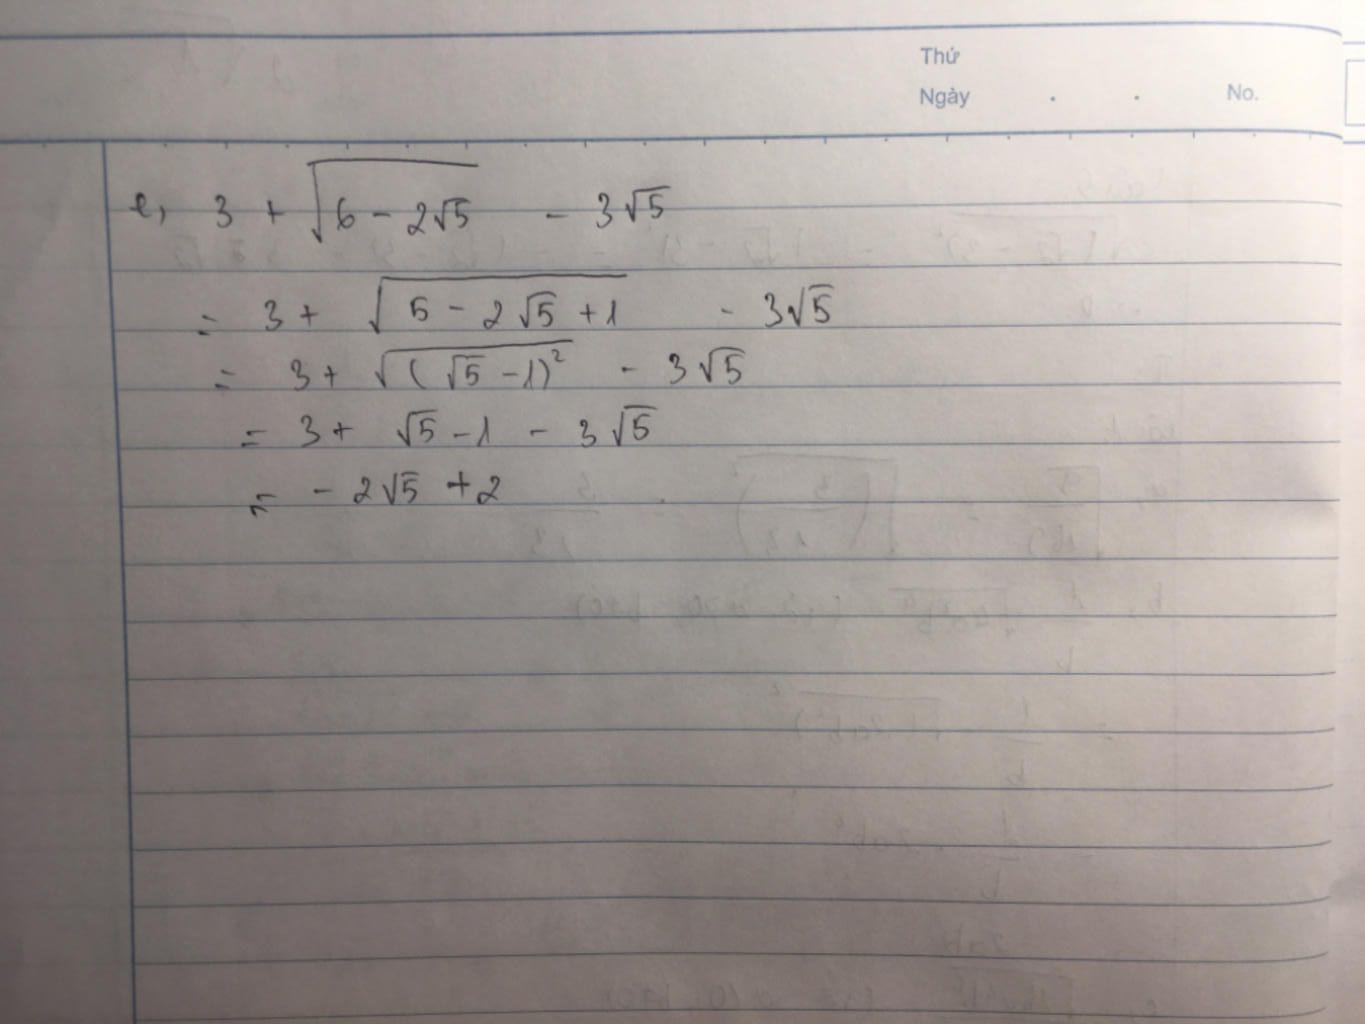 Thứ
Ngày . . No.
e, 3 + √(6 - 2√5) - 3√5
= 3 + √(5 - 2√5 + 1) - 3√5
= 3 + √((√5 - 1)²) - 3√5
= 3 + √5 - 1 - 3√5
= - 2√5 + 2